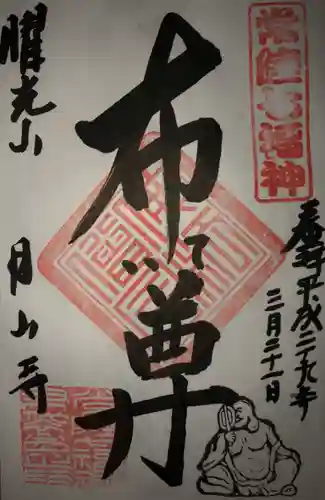 常陸七福神
奉拝平成二十九年
三月二十一日
布て
い尊
曜光山
月山寺